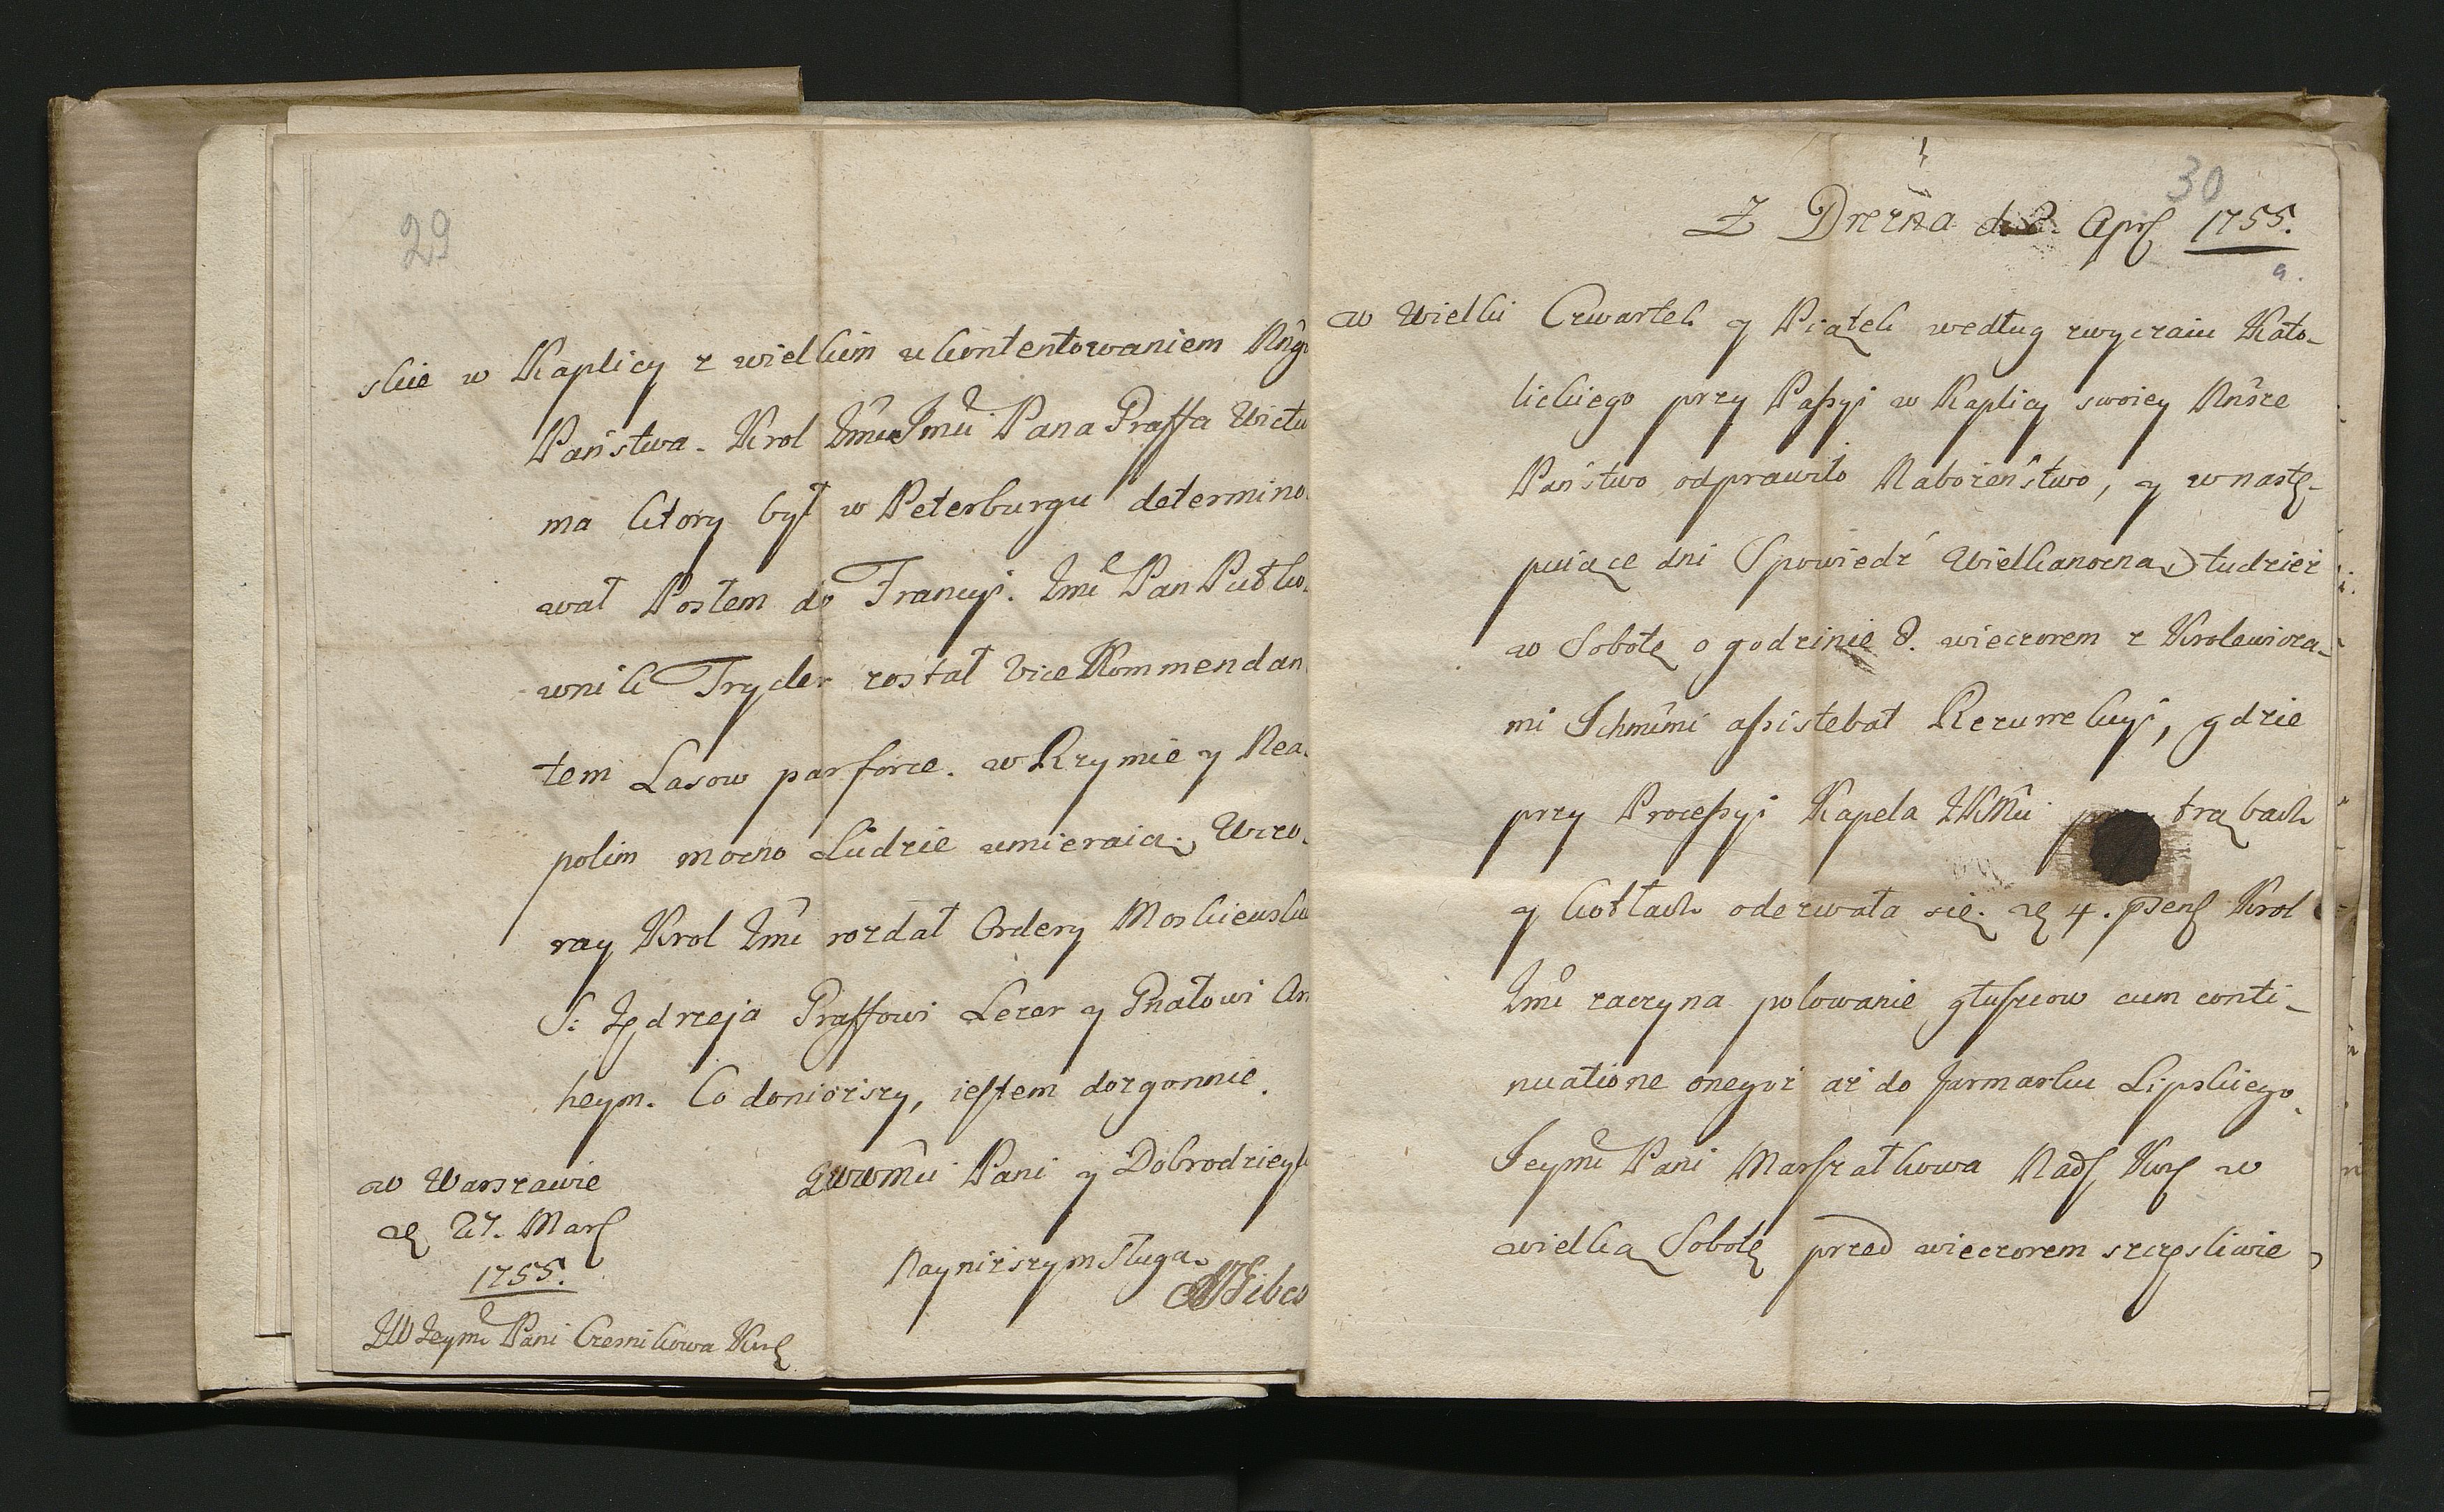 29
skie w Kaplicy z wielkim ukontentowaniem
Państwa. Krol Jmći Jmći Pana Graffa
ma ktory był w Peterburgu determino
wał Posłem do Francyi. Jmć Pan Pułko
wnik Fryder został Vice Kommendan
tem Lasow parforce. w Rzymie y Nea
polim mocno Ludzie umieraią, Wczo
ray Krol Jmć rozdał Ordery Moskiewskie
S: Jędrzeja Graffowi Lezer y Gnałowi Arn
heym. Co doniozszy, iestem dozgonnie.
w Warszawie
d 27. Mar
1755.
JWWMći Pani y Dobrodzieyk
Nayniższym Sługą
JW Jeymć Pani Czesnikowa Kor
30
Z Drezna d 2. Apr 1755.
w Wielki Czwartek y Piątek według zwyczaiu Kato-
lickiego przy Passyi w Kaplicy swoiey Knśze
Państwo odprawiło Nabożeństwo, y w nastę-
puiące dni Spowiedź Wielkanocną, tudzież
w Sobotę o godzinie 8. wieczorem z Krolewicza-
mi Ichmćmi assistebat Rezurrekcyi, gdzie
przy Processyi Kapela JKMći trąbach
y kotłach odezwała się. d 4. psen Krol
Jmć zaczyna polowanie głuszcow cum conti-
nuatione onegoż aż do Jarmarku Lipskiego.
Jeymć Pani Marszałkowa Nad Kor w
wielką Sobotę przed wieczorem szczęsliwie